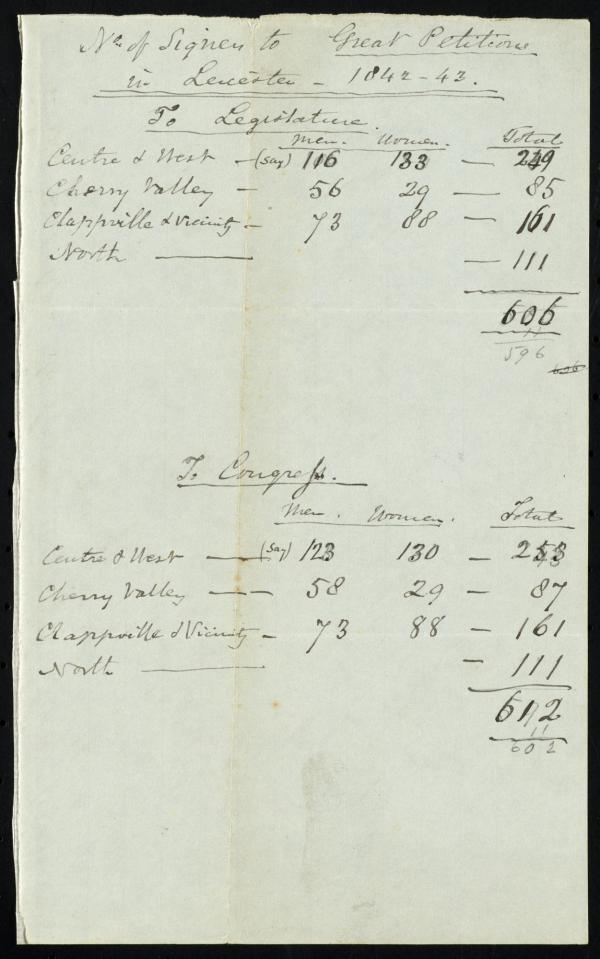 No. of Signers to Great Petitions
in Leicester - 1842-43.
To Legislature.
Men. Women. Total
Centre & West - (say) 116 133 - 249
Cherry Valley - 56 29 - 85
Clappville & Vicinity - 73 88 - 161
North - 111
606
11
596
606
To Congress.
Men. Women. Total
Centre & West - (say) 123 130 - 253
Cherry Valley - 58 29 - 87
Clappville & Vicinity - 73 88 - 161
North - 111
612
11
602